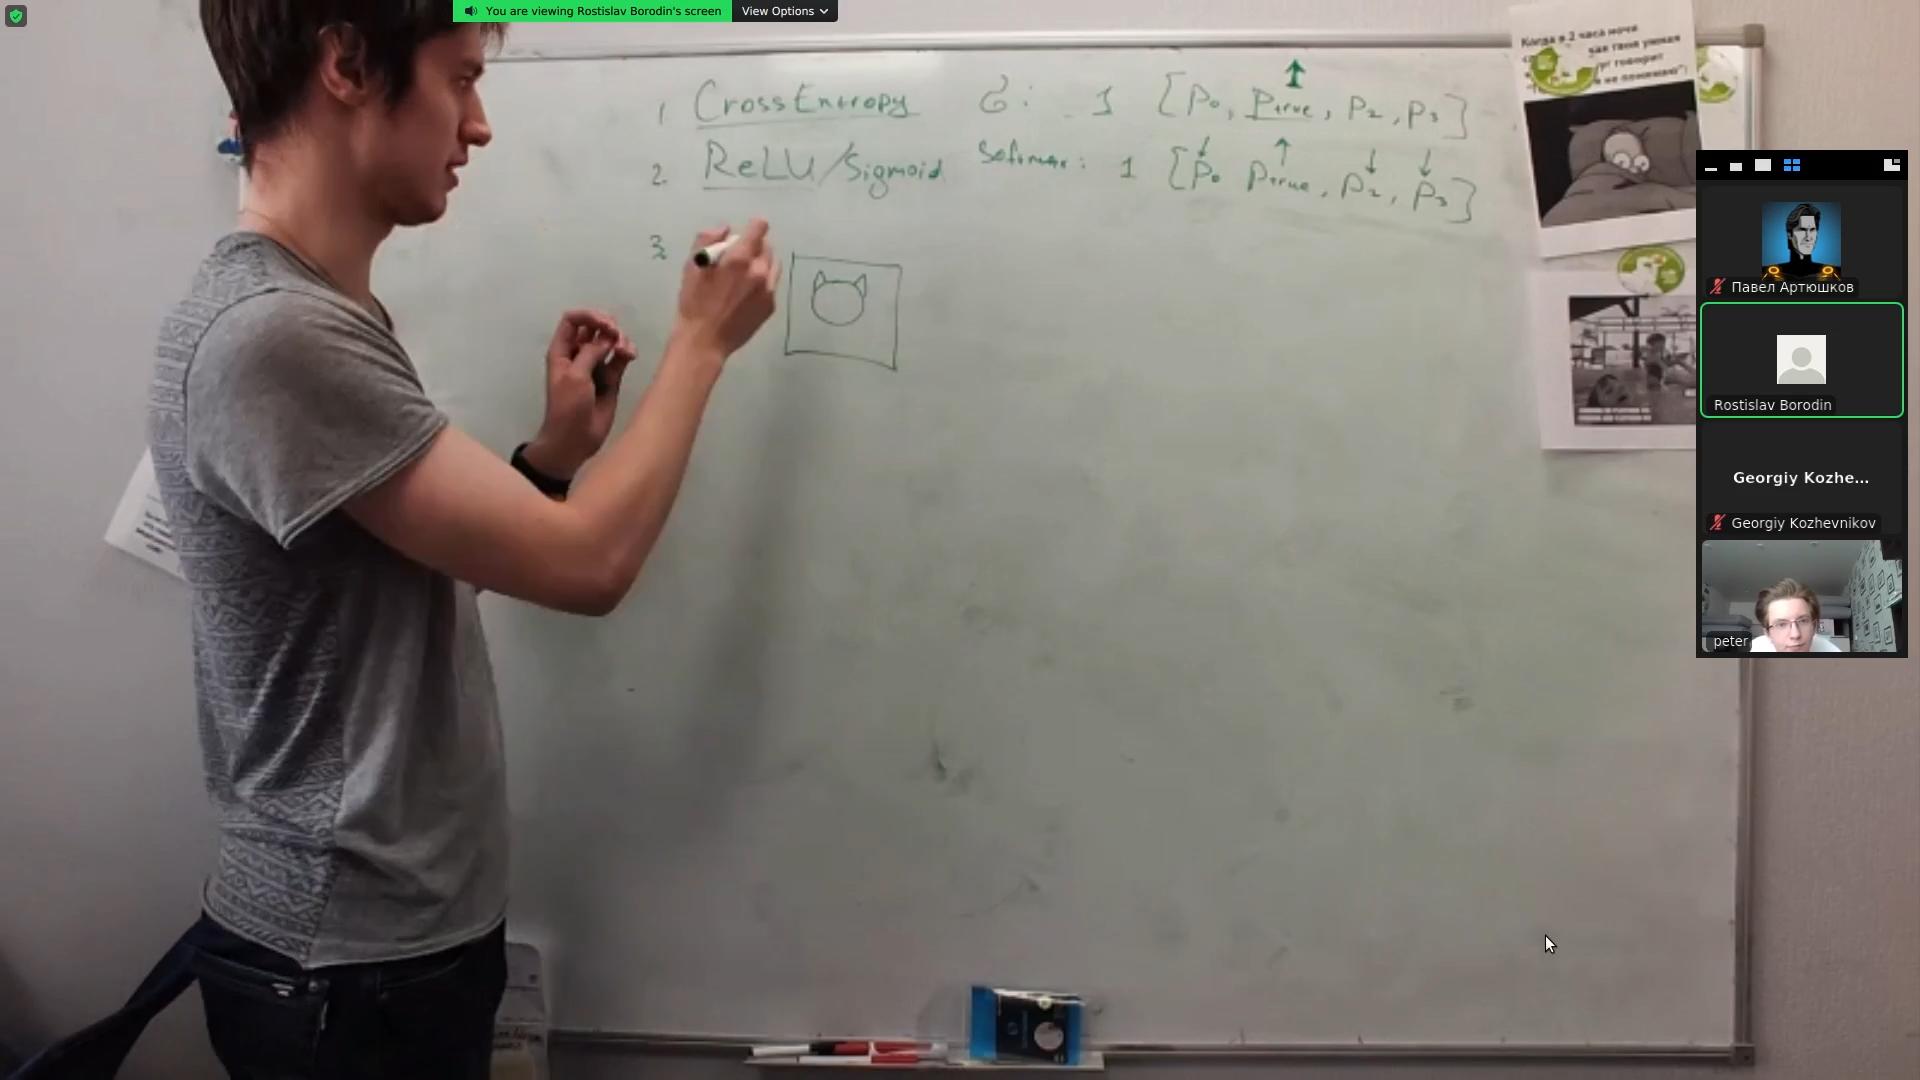 You are viewing Rostislav Borodin's screen
View Options
1 CrossEntropy б: 1 [P₀, Ptrue, P₂, P₃]
2 ReLU/Sigmoid Softmax: 1 [P₀ Ptrue, P₂, P₃]
3
Когда в 2 часа ночи
говорит
не понимаю"
Павел Артюшков
Rostislav Borodin
Georgiy Kozhe...
Georgiy Kozhevnikov
peter